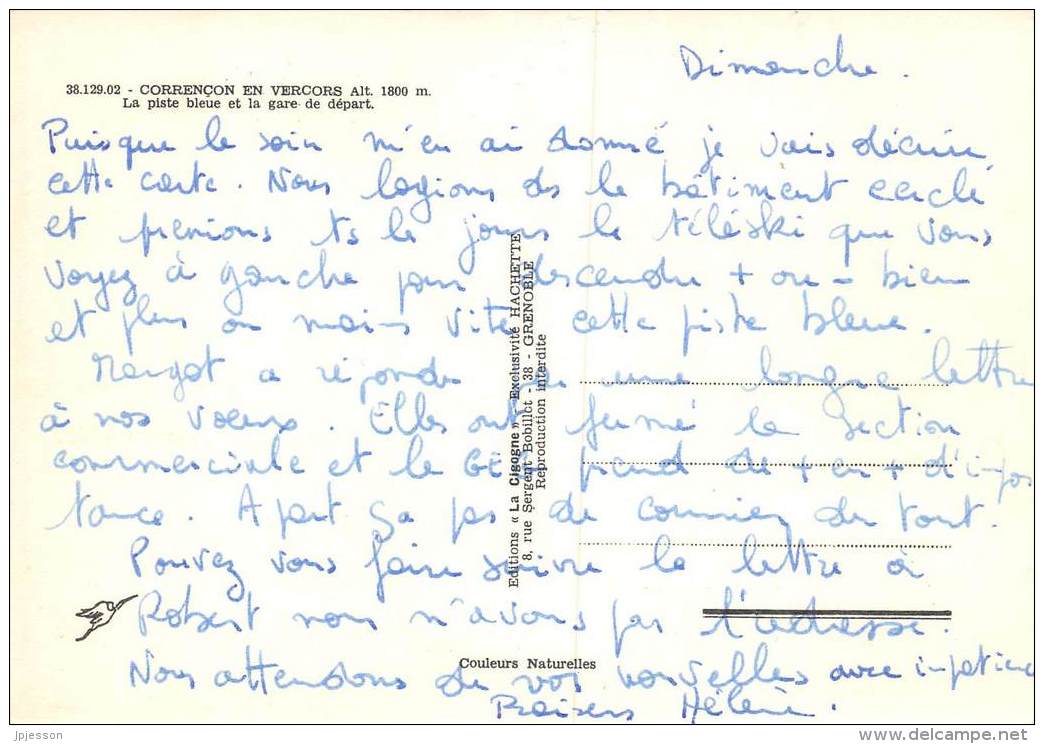 Dimanche.
38.129.02 - CORRENÇON EN VERCORS Alt. 1800 m.
La piste bleue et la gare de départ.
Puisque le soin m'en ai donné je vais décrire
cette carte. Nous logions ds le bâtiment cerclé
et prenions ts le jours le téléski que vous
voyez à gauche pour descendre + ou - bien
et plus ou moins vite cette piste bleue.
Margot a répondu par une longue lettre
à nos voeux. Elles ont fermé la section
commerciale et le prend de + en + d'impor
tance. A part ça pas de courrier du tout.
Pouvez vous faire suivre la lettre à
Robert nous n'avons pas l'adresse.
Nous attendons de vos nouvelles avec impatience
Baisers Hélène.
Editions « La Cigogne » - Exclusivité HACHETTE
8, rue Sergent Bobillot - 38 - GRENOBLE
Reproduction interdite
Couleurs Naturelles
Jpjesson
www.delcampe.net